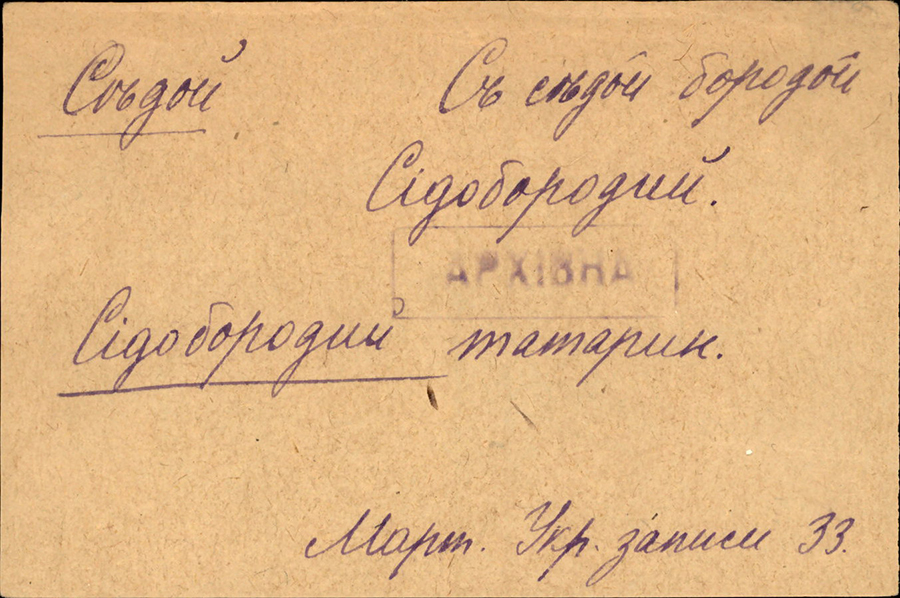 Сѣдой
Съ сѣдой бородой
Сідобородий.
АРХІВНА
Сідобородий татарин.
Март. Укр. записи 33.